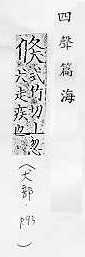 四聲篇海
倏 式竹切上忽
犬走疾也
(犬部 p93)